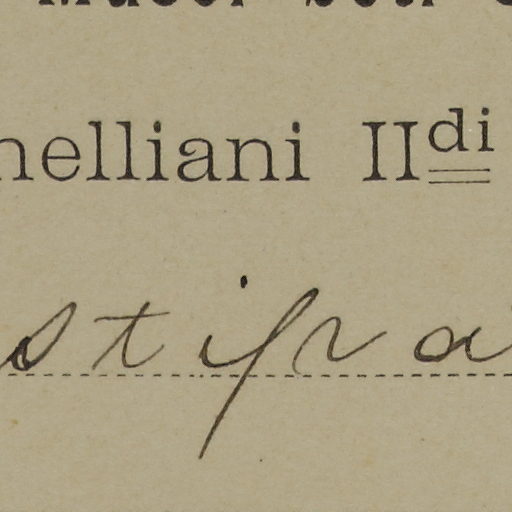 nelliani IIdi
stipa